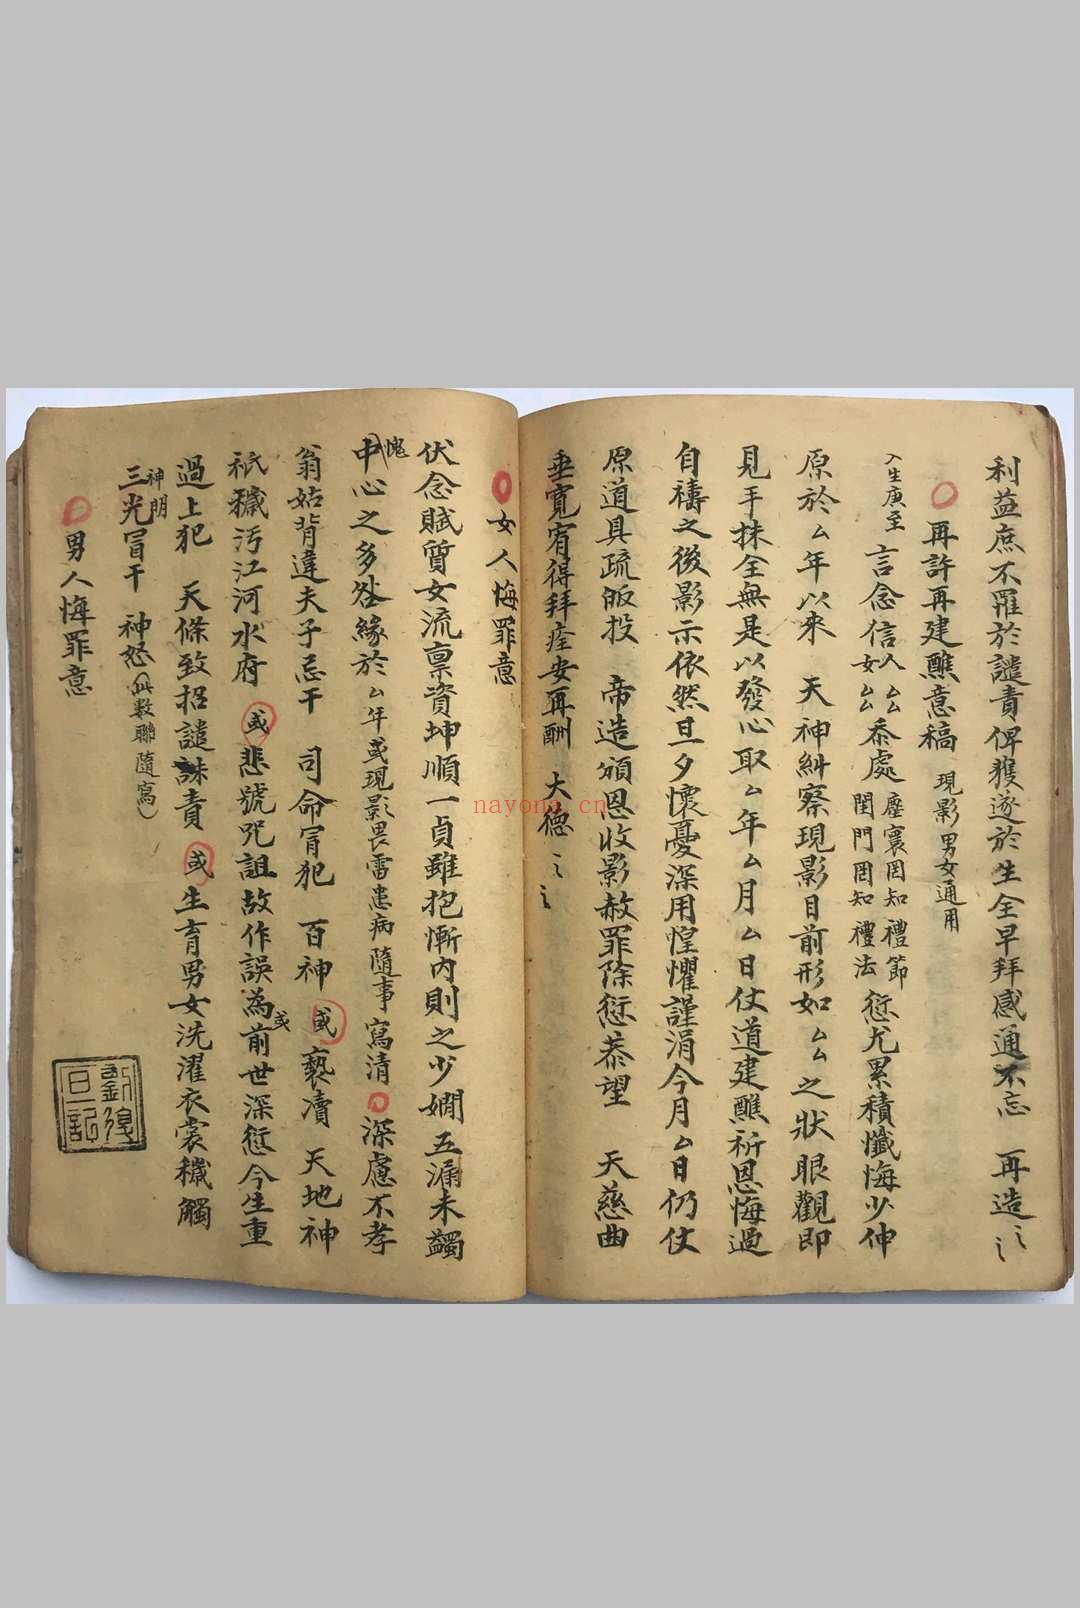 利益庶不罹於譴責俾獲遂於生全早拜感通不忘 再造
再許再建醮意稿 現影男女通用
入生庚至 言念信人女厶厶 忝處 塵寰罔知禮節 閨門罔知禮法 愆尤累積懺悔少伸
原於厶年以來 天神糾察現影目前形如厶厶之狀眼觀即
見手抹全無是以發心取厶年厶月厶日仗道建醮祈恩悔過
自禱之後影示依然旦夕懷憂深用惶懼謹涓今月厶日仍仗
原道具疏皈投 帝造頒恩收影赦罪除愆恭望 天慈曲
垂寬宥得拜痊安再酬 大德
女人悔罪意
伏念賦質女流稟資坤順一貞雖抱慚內則之少嫻五漏未蠲
愧中心之多咎緣於厶年或現影畏雷患病隨事寫清 深慮不孝
翁姑背違夫子忌干 司命冒犯 百神 或 褻瀆 天地神
祇穢污江河水府 或 悲號咒詛故作誤為或前世深愆今生重
過上犯 天條致招譴誅責 或 生育男女洗濯衣裳穢觸
神明三光冒干 神怒(此數聯隨寫)
男人悔罪意
nayona.cn